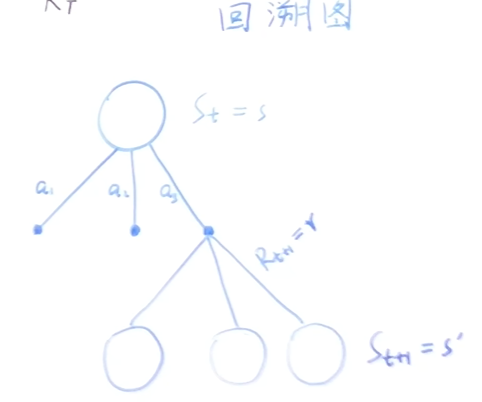 回溯图
S_t = s
a₁ a₂ a₃
R_{t+1} = r
S_{t+1} = s'